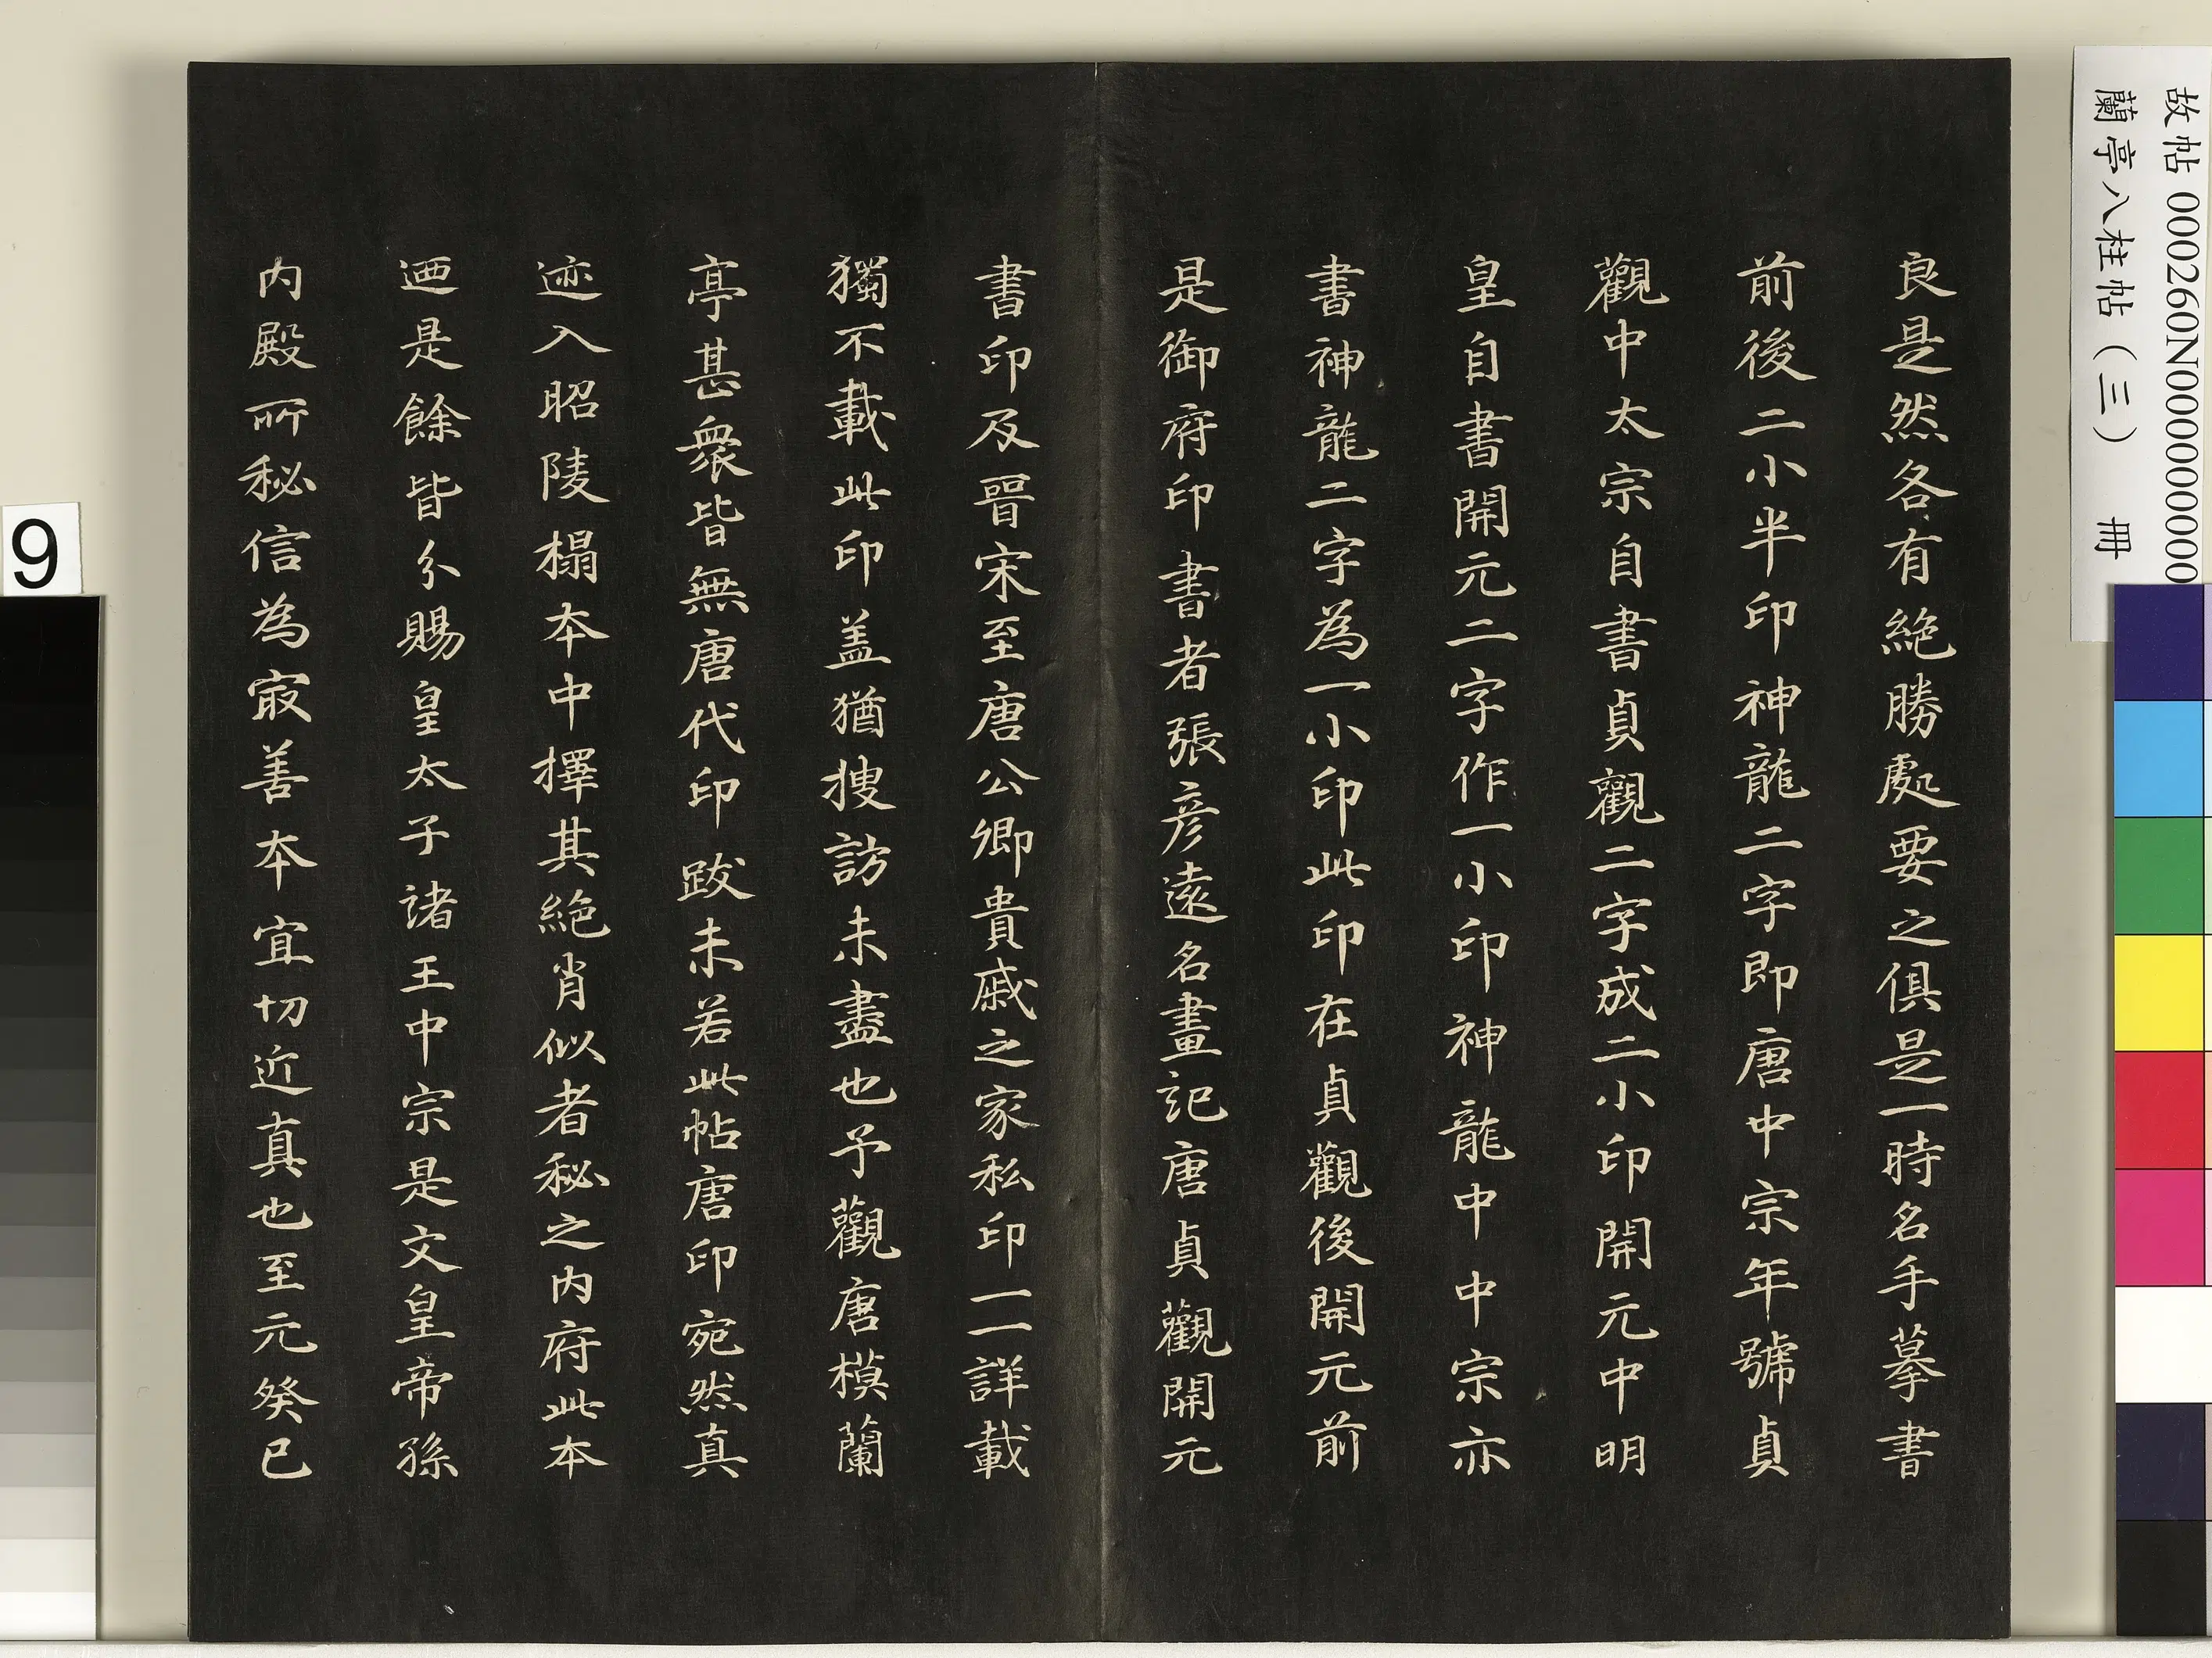 良是然各有絕勝處要之俱是一時名手摹書
前後二小半印神龍二字即唐中宗年號貞
觀中太宗自書貞觀二字成二小印開元中明
皇自書開元二字作一小印神龍中中宗亦
書神龍二字為一小印此印在貞觀後開元前
是御府印書者張彥遠名畫記唐貞觀開元
書印及晉宋至唐公卿貴戚之家私印一一詳載
獨不載此印盖猶搜訪未盡也予觀唐模蘭
亭甚衆皆無唐代印跋未若此帖唐印宛然真
迹入昭陵榻本中擇其絕肖似者秘之內府此本
迺是餘皆分賜皇太子諸王中宗是文皇帝孫
内殿所秘信為㝡善本宜切近真也至元癸巳
故帖 000260N000000000
蘭亭八柱帖（三） 冊
9